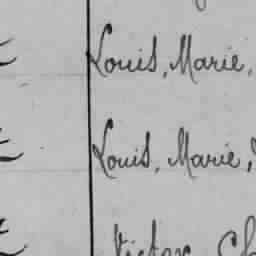 Louis, Marie,
Louis, Marie,
Victor